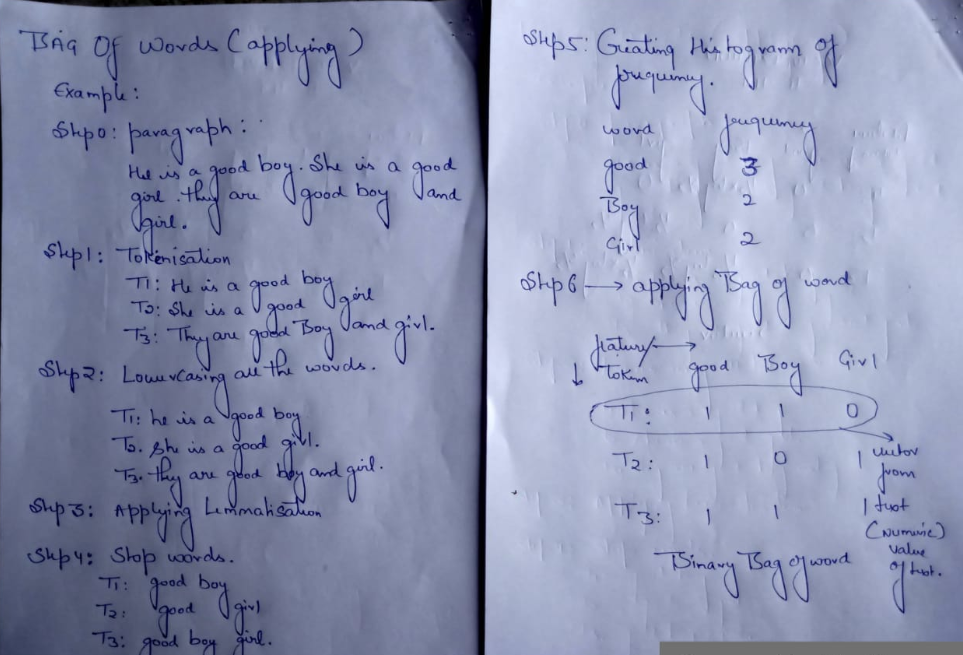 Bag Of Words (applying)
Example:
Step0: paragraph:
He is a good boy. She is a good
girl. they are good boy and
girl.
Step1: Tokenisation
T1: He is a good boy
T2: She is a good girl
T3: They are good Boy and girl.
Step2: Lowercasing all the words.
T1: he is a good boy
T2. she is a good girl.
T3. they are good boy and girl.
Step3: Applying Lemmatisation
Step4: Stop words.
T1: good boy
T2: good girl
T3: good boy girl.
Step5: Creating Histogram of
frequency.
word frequency
good 3
Boy 2
Girl 2
Step6 → applying Bag of word
feature/ →
↓ Token good Boy Girl
T1: 1 1 0
T2: 1 0 1
T3: 1 1 1
vector
from
text
(Numeric)
value
of text.
Binary Bag of word